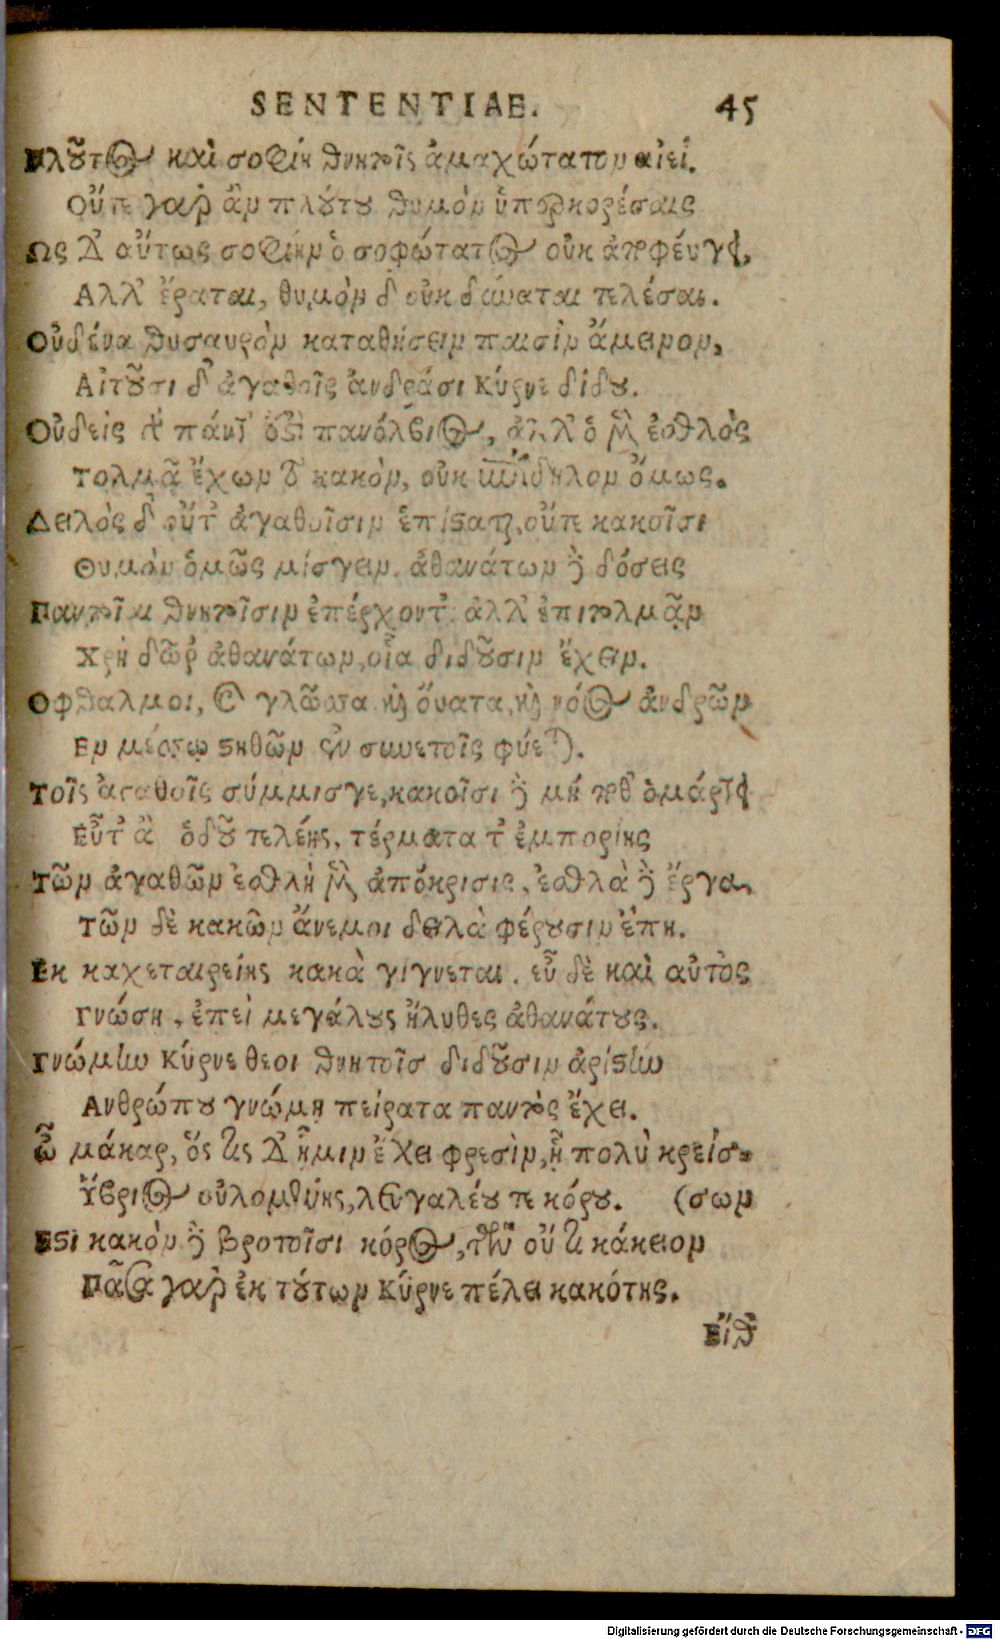 SENTENTIAE. 45
Πλοῦτος καὶ σοφίη θνητοῖς ἀμαχώτατον αἰεί.
Οὔτε γὰρ ἂν πλούτου θυμὸν ὑπερκορέσαις
Ως δ᾽ αὔτως σοφίην ὁ σοφώτατος οὐκ ἀποφεύγει,
Αλλ᾽ ἔραται, θυμὸν δ᾽ οὐκ δύναται τελέσαι.
Οὐδένα θησαυρὸν καταθήσειν παισὶν ἄμεινον,
Αἰτοῦσι δ᾽ ἀγαθοῖς ἀνδράσι Κύρνε δίδου.
Οὐδεὶς πάντ᾽ ἐστὶ πανόλβιος, ἀλλ᾽ ὁ μὲν ἐσθλὸς
Τολμᾷ ἔχων τὸ κακὸν, οὐκ ἐπίδηλον ὅμως.
Δειλὸς δ᾽ οὔτ᾽ ἀγαθοῖσιν ἐπίσταται, οὔτε κακοῖσι
Θυμὸν ὁμῶς μίσγειν. ἀθανάτων δὲ δόσεις
Παντοῖαι θνητοῖσιν ἐπέρχοντ᾽. ἀλλ᾽ ἐπιτολμᾷν
Χρὴ δῶρ᾽ ἀθανάτων, οἷα διδοῦσιν ἔχειν.
Οφθαλμοι, καὶ γλῶσσα καὶ ὄυατα, καὶ νόος ἀνδρῶν
Εν μέσσῳ στηθῶν ἐν συνετοῖς φύεται.
Τοῖς ἀγαθοῖς σύμμισγε, κακοῖσι δὲ μή ποθ᾽ ὁμάρτει
Εὖτ᾽ ἂ ὁδοῦ τελέης, τέρματα τ᾽ ἐμπορίης
Τῶν ἀγαθῶν ἐσθλὴ μὲν ἀπόκρισις, ἐσθλὰ δὲ ἔργα,
Τῶν δὲ κακῶν ἄνεμοι δειλὰ φέρουσιν ἔπη.
Εκ καχεταιρείης κακὰ γίγνεται. εὖ δὲ καὶ αὐτὸς
Γνώση, ἐπεὶ μεγάλους ἤλυθες ἀθανάτους.
Γνώμην Κύρνε θεοι θνητοῖσ διδοῦσιν ἀρίστην
Ανθρώπου γνώμη πείρατα παντὸς ἔχει.
ὦ μάκαρ, ὅς τις δ᾽ ἥμιν ἔχει φρεσὶν, ἦ πολὺ κρείσ-
Ὕβριος οὐλομένης, λευγαλέου τε κόρου. (σων
Εστὶ κακὸν δὲ βροτοῖσι κόρος, τῶν οὔ τι κάκειον
Πᾶσα γὰρ ἐκ τούτων Κύρνε πέλει κακότης.
Εἴθ᾽
Digitalisierung gefördert durch die Deutsche Forschungsgemeinschaft - DFG